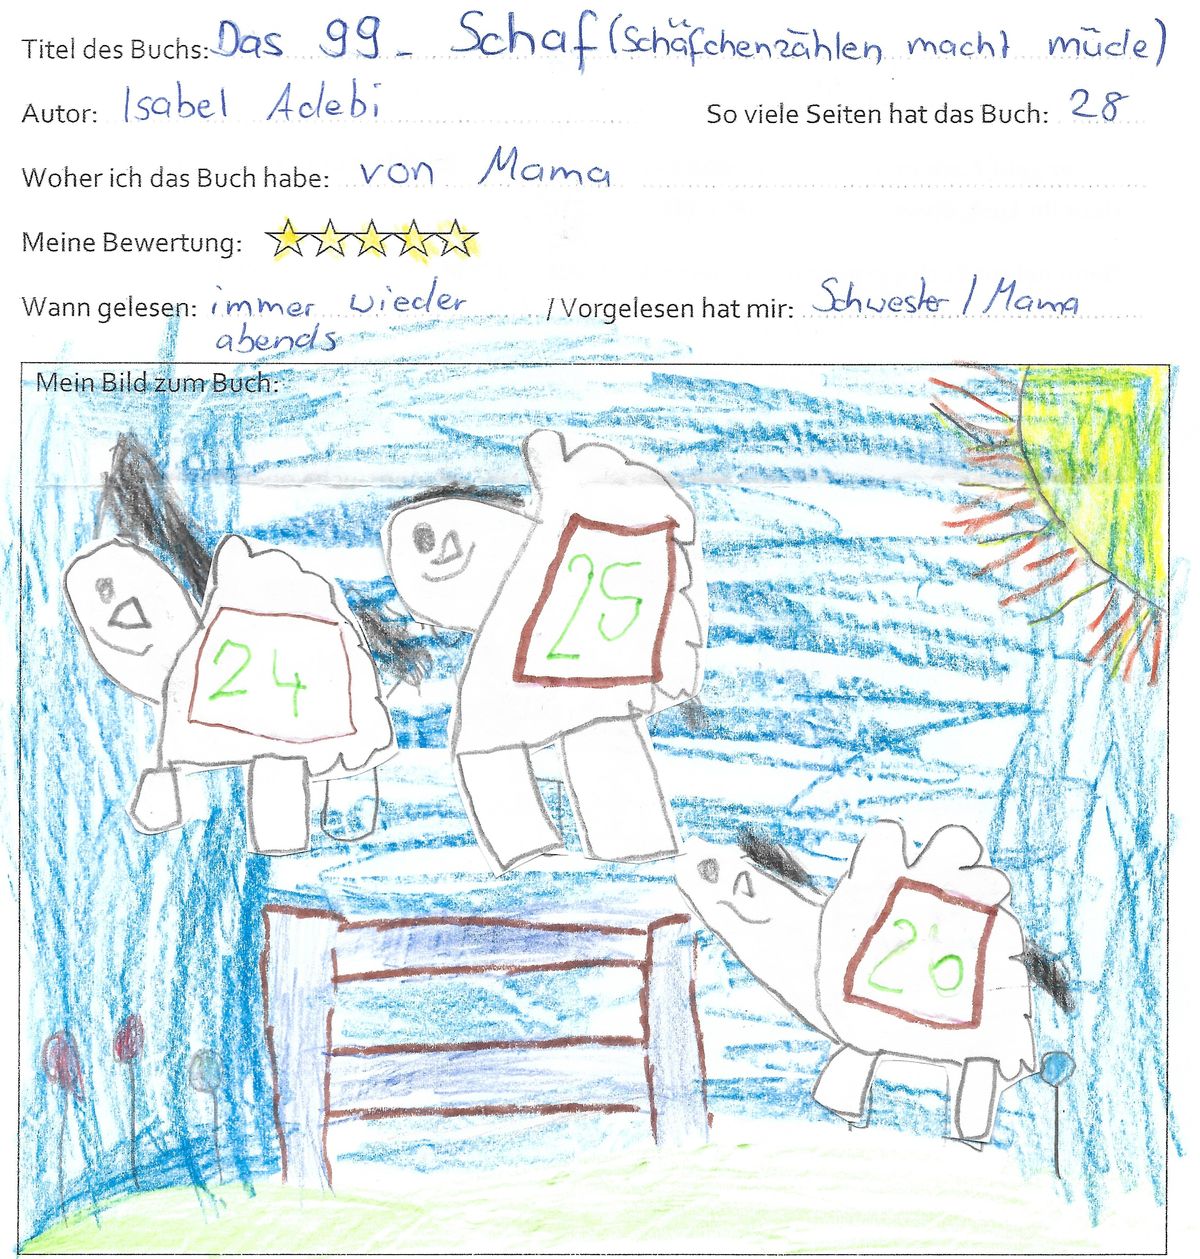 Titel des Buchs: Das 99. Schaf (Schäfchenzählen macht müde)
Autor: Isabel Adebi So viele Seiten hat das Buch: 28
Woher ich das Buch habe: von Mama
Meine Bewertung:
Wann gelesen: immer wieder / Vorgelesen hat mir: Schwester / Mama
abends
Mein Bild zum Buch:
25
24
26